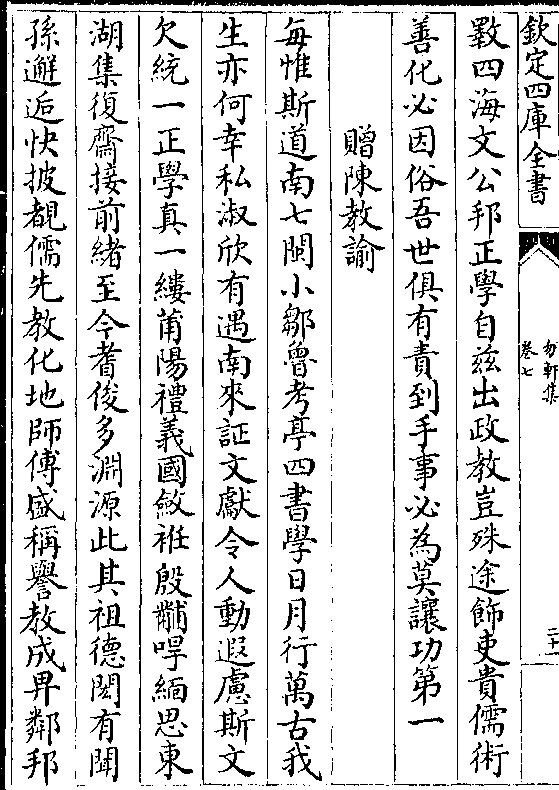 欽定四庫全書
勿軒集
卷七
二十一
斁四海文公邦正學自兹出政教豈殊途飾吏貴儒術
善化必因俗吾世俱有責到手事必為莫讓功第一
贈陳教諭
每惟斯道南七閩小鄒魯考亭四書學日月行萬古我
生亦何幸私淑欣有遇南來証文獻令人動遐慮斯文
欠統一正學真一縷莆陽禮義國斂袵殷黼哻緬思東
湖集復齋接前緒至今耆俊多淵源此其祖德閎有聞
孫邂逅快披覩儒先教化地師傅盛稱譽教成畀鄰邦